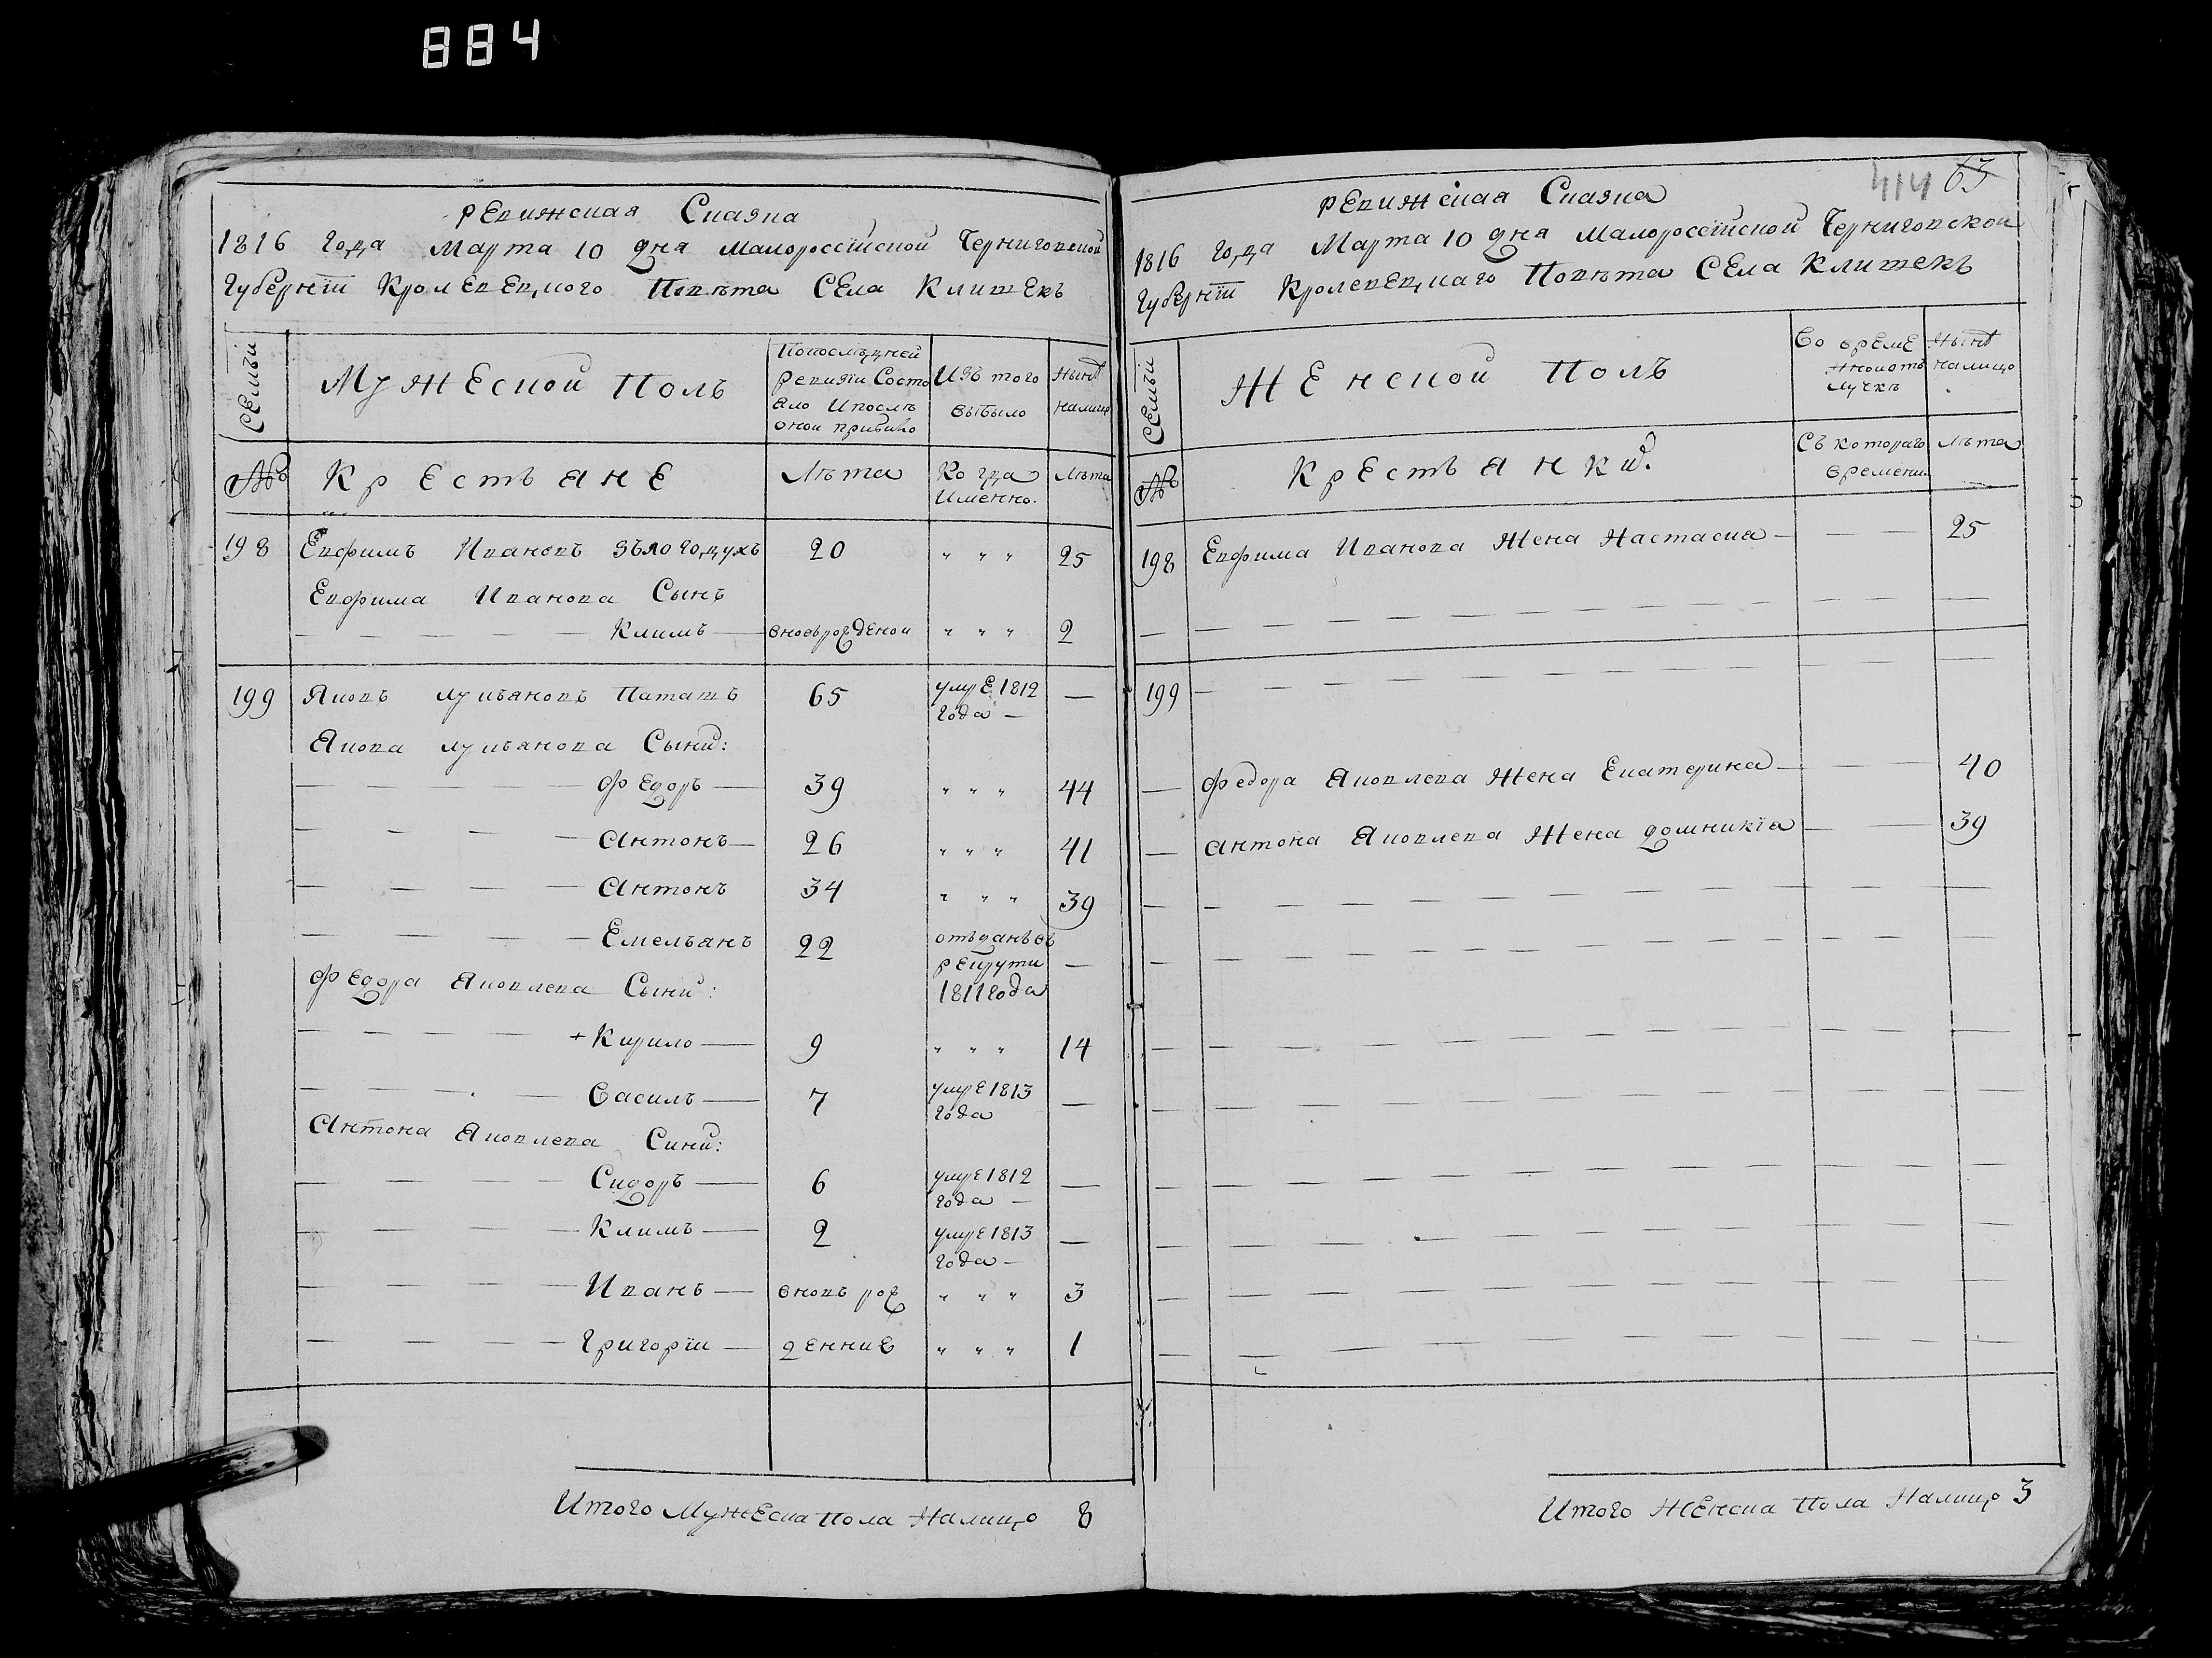 884
Ревижская Сказка
1816 года Марта 10 дня Малоросс̈ійской Черниговской
Губерніи Кролевецкого Повѣта Села Клишекъ
Семьи
Мужеской Полъ
Попослѣдней
ревизіи Состо
яло Ипослѣ
оной прибыло
Изъ того
выбыло
Нынѣ
налицо
№
Крестьяне
Лѣта
Когда
Именно.
Лѣта
198 Евфимъ Ивановъ 20 " " " 25
Евфима Ивановa Сынъ
Климъ вновьрожденои " " " 2
199 Яковъ лукьяновъ Паташъ 65 умре 1812
года —
Якова лукьянова Сыны:
Федоръ 39 " " " 44
Антонъ 26 " " " 41
Антонъ 34 " " " 39
Емельянъ 22 отъданъ въ
рекруты
1811 года
Федора Яковлева Сыны:
+ Кирило 9 " " " 14
Василь 7 умре 1813
года
Антона Яковлева Сини:
Сидоръ 6 умре 1812
года —
Климъ 2 умре 1813
года —
Иванъ вновь рож " " " 3
Григорій денние " " " 1
Итого Мужеска пола Налицо 8
414 63
Ревижская Сказка
1816 года Марта 10 дня Малороссійской Черниговской
Губерніи Кролевецкаго Повѣта Села Клишекъ
Семьи
Женской Полъ
Во време
нной отъ
лучкѣ
Нынѣ
налицо
№
Крестьянки.
Съ котораго
времени
Лѣта
198 Евфима Иванова Жена Настасиа — — — 25
199
Федора Яковлева Жена Екатерина — — — 40
Антона Яковлева Жена домникіа — — 39
Итого Женска пола Налицо 3